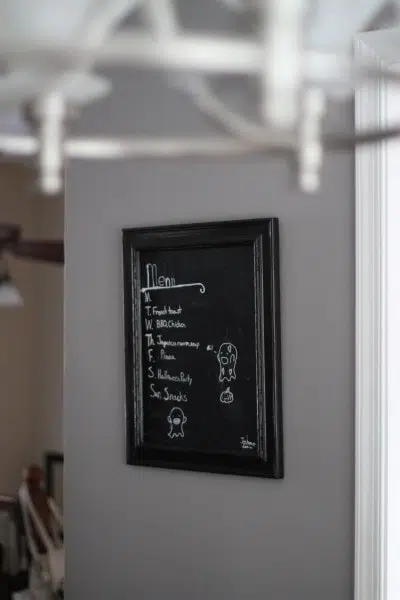 Menu
M.
T. French toast
W. BBQ Chicken
Th
F. Pizza
S. Halloween Party
Sun Snacks